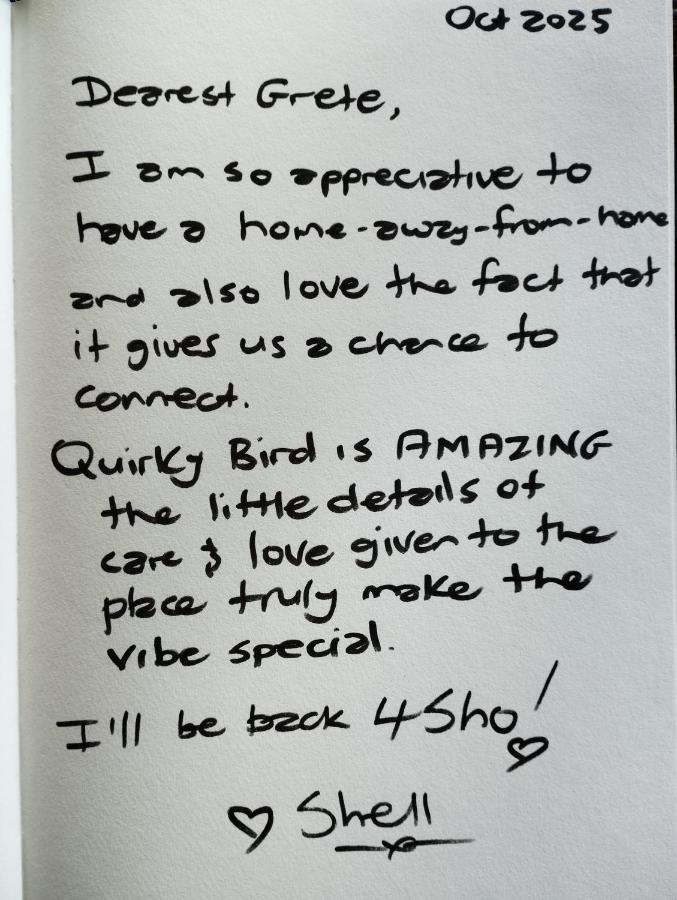 Oct 2025
Dearest Grete,
I am so appreciative to
have a home-away-from-home
and also love the fact that
it gives us a chance to
connect.
Quirky Bird is AMAZING
the little details of
care & love given to the
place truly make the
vibe special.
I'll be back 4Sho!
♡
♡ Shell